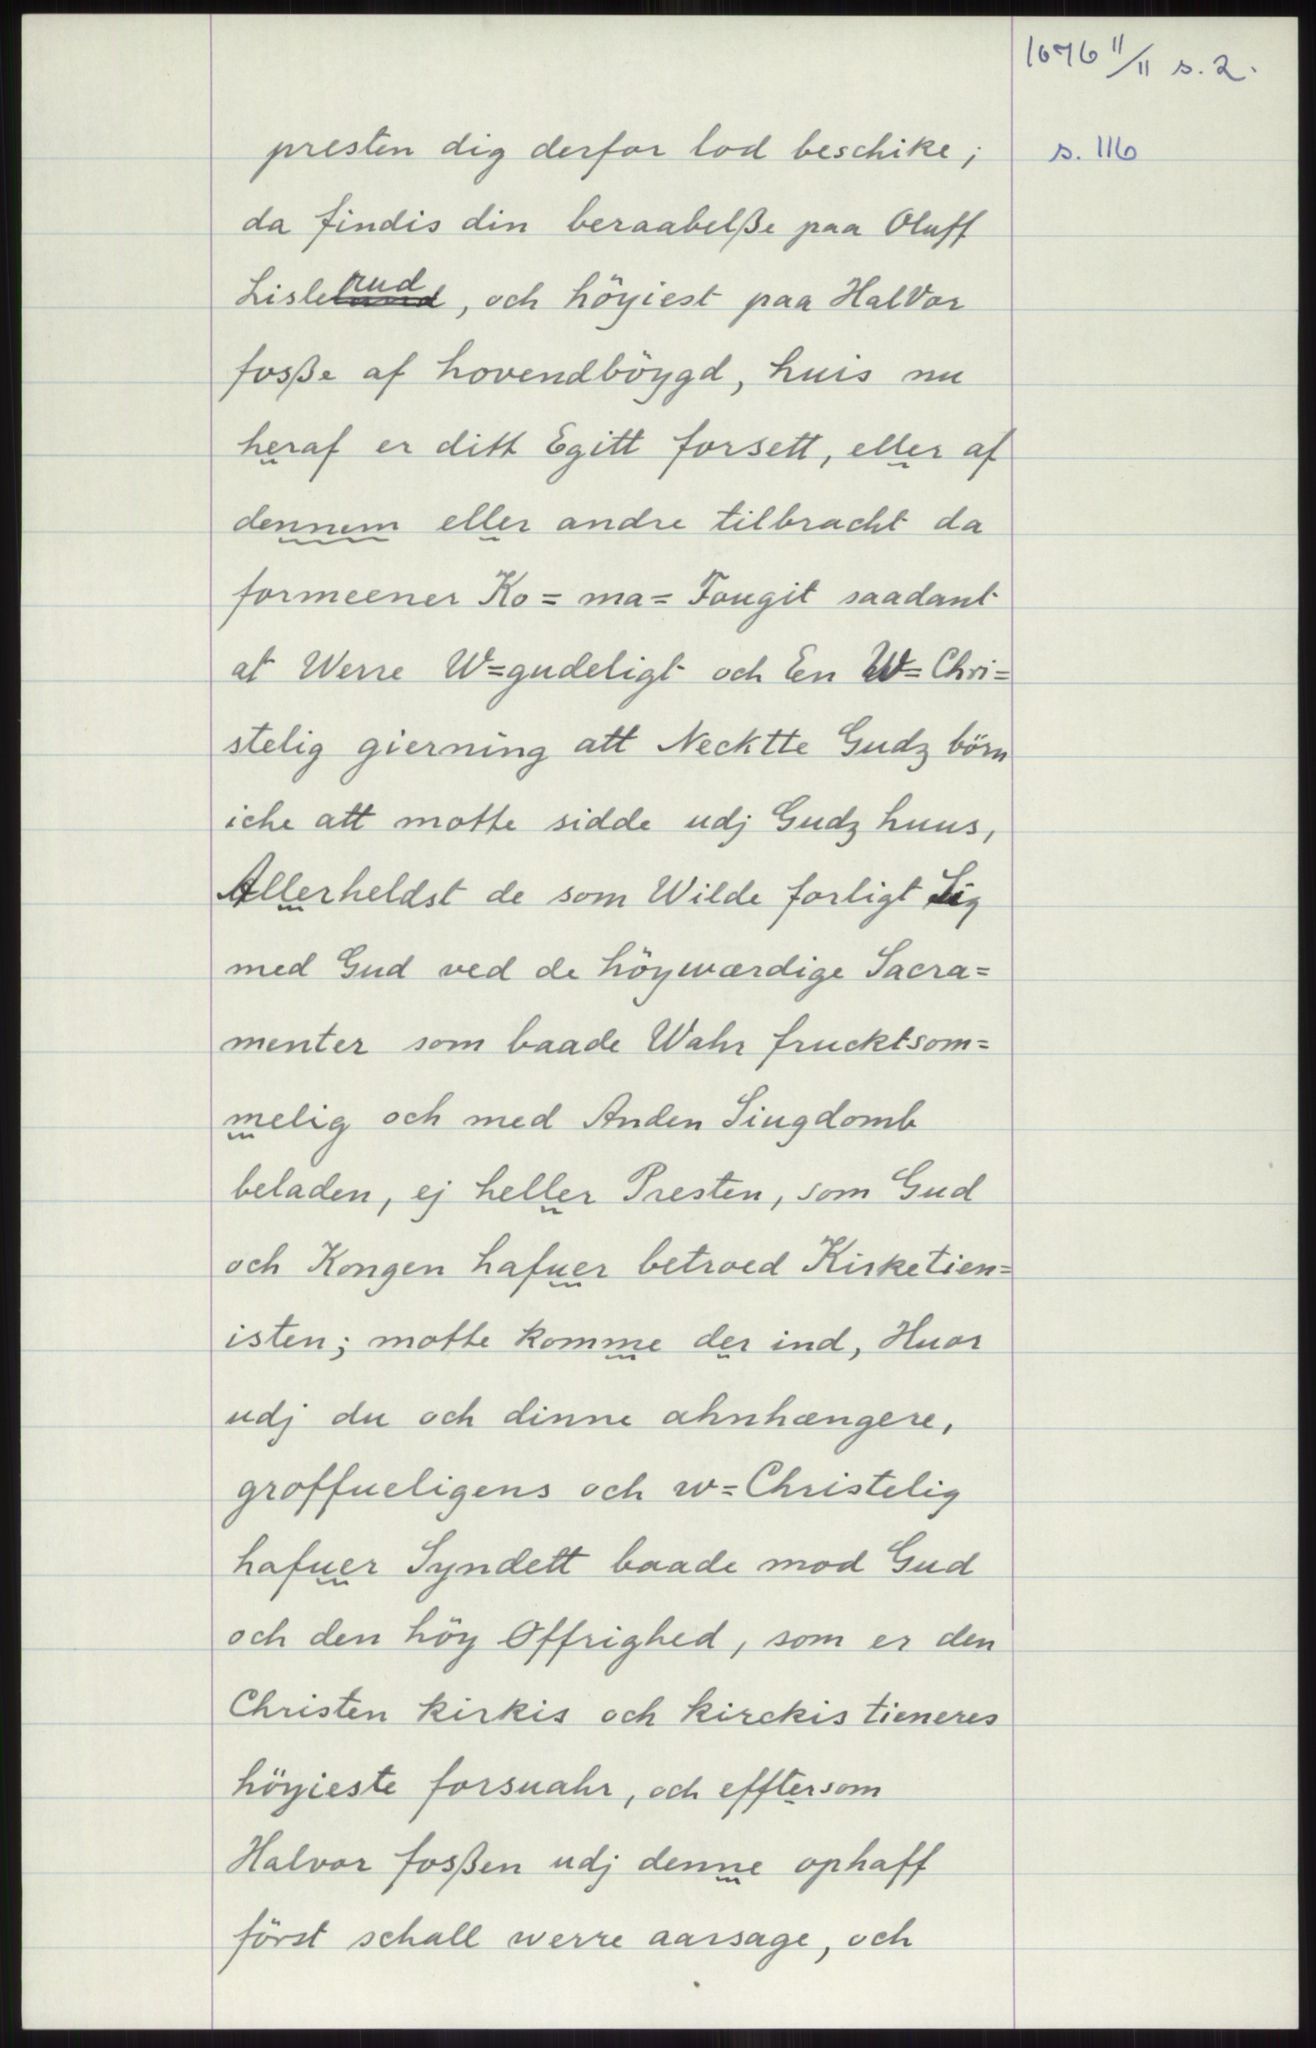 1676 11/11 s. 2.
s. 116
presten dig derfor lod beschike;
da findis din beraabelße paa Oluff
Lislerud, och höyiest paa Halvor
foße af hovendböygd, huis nu
heraf er ditt Egitt forsett, eller af
dennem eller andre tilbracht da
formeener Ko= ma= Fougit saadant
at Werre W=gudeligt och En W= Chri=
stelig gierning att Necktte Gudz börn
iche att motte sidde udj Gudz huus,
Allerheldst de som Wilde forligt Sig
med Gud ved de höyværdige Sacra=
menter som baade Wahr frucktsom=
melig och med Anden Siugdomb
beladen, ej heller Presten, som Gud
och Kongen hafuer betroed Kirketien=
isten; motte komme der ind, Huor
udj du och dinne ahnhængere,
groffueligens och w=Christelig
hafuer Syndett baade mod Gud
och den höy Offrighed, som er den
Christen kirkis och kirckis tieneres
höyieste forsuahr, och efftersom
Halvor foßen udj denne ophaff
först schall werre aarsage, och